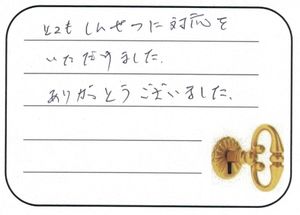 とてもしんせつに対応を
いただきました。
ありがとうございました。